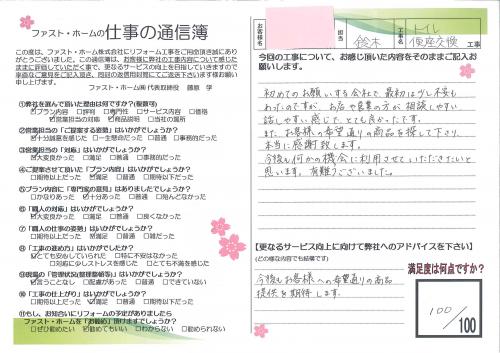 ファスト・ホームの仕事の通信簿
この度は、ファスト・ホーム株式会社にリフォーム工事をご用命頂き誠にあり
がとうございました。この通信簿は、お客様に弊社の工事内容について感じた
ままに評価していただく事で、更なるサービスの向上を目指していきますので
率直なご意見をご記入頂き、同封の返信用封筒にてご返送下さいます様お願い
申し上げます。
ファスト・ホーム㈱ 代表取締役 藤原 学
①弊社を選んで頂いた理由は何ですか?(複数可)
□プラン内容 □評判 □専門性 □サービス内容 □価格
□対応力 □商品説明 □当社の場所
②営業担当の「ご提案する姿勢」はいかがでしたか?
□十分誠意を感じた □一生懸命だった □普通 □事務的だった
③営業担当の「対応」はいかがでしたか?
□大変良かった □満足 □普通 □事務的だった
④ご提案させて頂いた「プラン内容」はいかがでしたか?
□期待以上だった □満足 □普通 □期待以下だった
⑤プラン内容に「専門家の意見」はありましたでしょうか?
□かなりあった □十分あった □普通 □殆んどなかった
⑥「職人の対応」はいかがでしたでしょうか?
□大変良かった □満足 □普通 □良くなかった
⑦「職人の仕事の姿勢」はいかがでしたでしょうか?
□期待以上だった □満足 □普通 □雑だった
⑧「工事の進め方」はいかがでしたか?
□とても安心していられた □特に不安はなかった
□対応に少しストレスを感じた □とても不満を感じた
⑨現場の「管理状況(整理整頓等)」はいかがでしたでしょうか?
□言うことなし □配慮があった □普通 □できていない
⑩「工事の仕上がり」はいかがでしたでしょうか?
□期待以上だった □満足 □普通 □期待以下だった
⑪もし、お知合いにリフォームの予定がありましたら
ファスト・ホームを「お勧め」頂けますでしょうか?
□ぜひ勧めたい □勧めてもいい □わからない □勧められない
お客様名
担当
鈴木
工事名
トイレ
便座交換
工事
今回の工事について、お感じ頂いた内容をそのままご記入お
願いします。
初めてのお願いする会社で、最初は少し不安も
あったのですが、お店や営業の方が相談しやすい
話しやすい感じで、とても良かったです。
また、お客様の希望通りの商品を探して下さり、
本当に感謝致します。
今後も何かの機会に利用させていただきたいと
思います。有難うございました。
【更なるサービス向上に向けて弊社へのアドバイスを下さい】
(どの様な内容でも結構です)
今後もお客様への希望通りの商品
提供を期待します。
満足度は何点ですか?
100/100